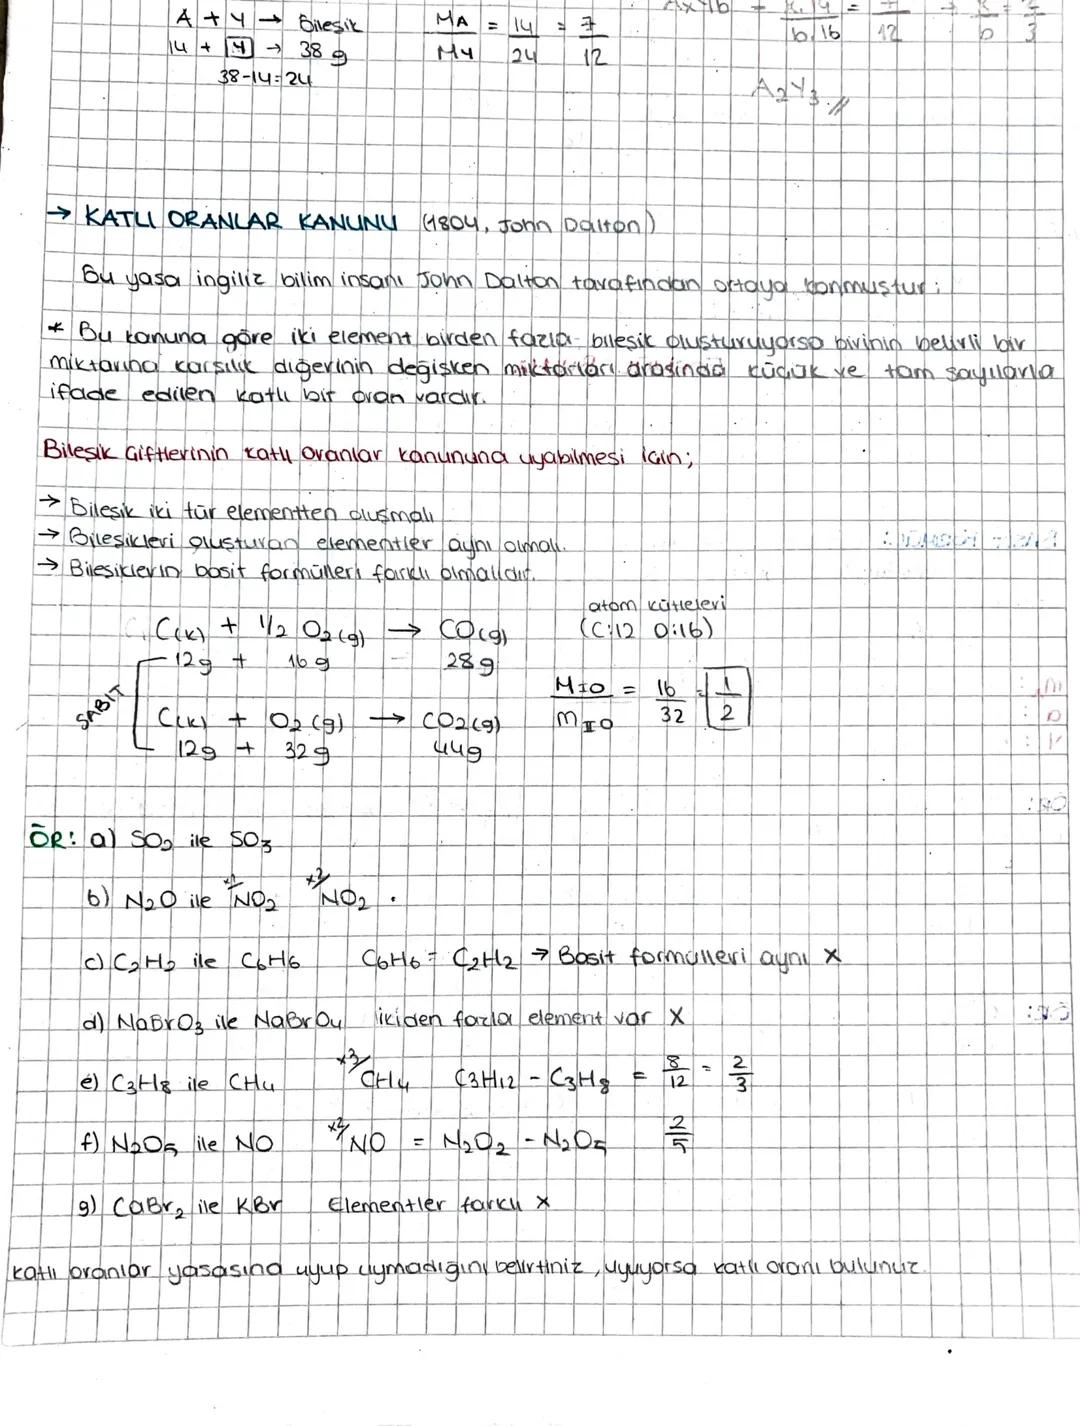 A + Y → Bileşik
MA / MY = 14 / 24 = 7 / 12
14 + Y → 38 g
38-14=24
b.16 12 b 3
A2Y3 //
→ KATLI ORANLAR KANUNU (1804, John Dalton)
Bu yasa ingiliz bilim insanı John Dalton tarafından ortaya konmuştur;
* Bu kanuna göre iki element birden fazla bileşik oluşturuyorsa birinin belirli bir
miktarına karşılık diğerinin değişken miktarları arasında küçük ve tam sayılarla
ifade edilen katlı bit oran vardır.
Bileşik Çiftlerinin katlı oranlar kanununa uyabilmesi için;
→ Bileşik iki tür elementten oluşmalı
→ Bileşikleri oluşturan elementler aynı olmalı.
→ Bileşiklerin basit formülleri farklı olmalıdır.
atom kütleleri
(C:12 O:16)
C(k) + 1/2 O2(g) → CO(g)
12g + 16g 28g
SABİT
MIO / mIIO = 16 / 32 = 1 / 2
C(k) + O2(g) → CO2(g)
12g + 32g 44g
ÖR: a) SO2 ile SO3
b) N2O ile NO2 x2/ NO2 .
c) C2H2 ile C6H6 C6H6 = C2H2 → Basit formülleri aynı X
d) NaBrO3 ile NaBrO4 ikiden fazla element var X
e) C3H8 ile CH4 x3/ CH4 C3H12 - C3H8 = 8/12 = 2/3
f) N2O5 ile NO x2/ NO = N2O2 - N2O5 2/5
g) CaBr2 ile KBr Elementler farklı X
katlı oranlar yasasına uyup uymadığını belirtiniz, uyuyorsa katlı oranı bulunuz.